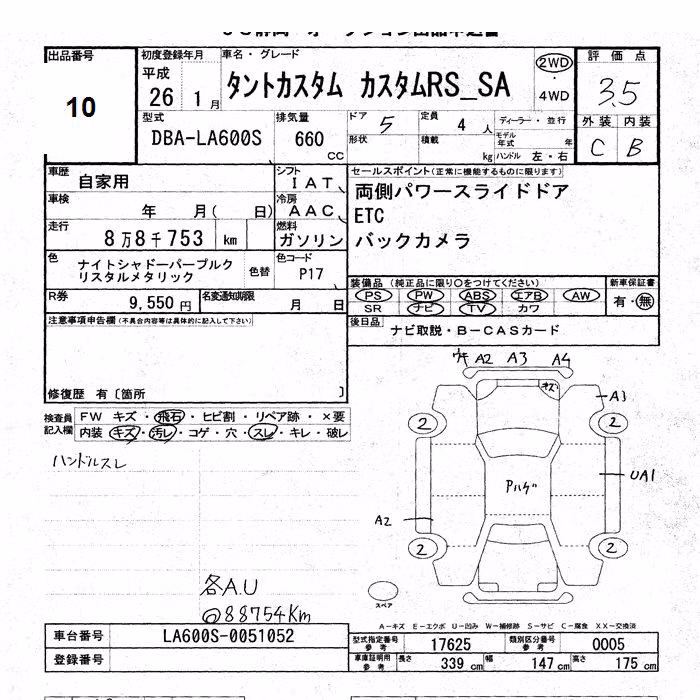 出品番号
10
初度登録年月
平成
26 1 月
車名・グレード
タントカスタム カスタムRS_SA
2WD
・
4WD
評価点
3.5
外装 内装
C B
型式
DBA-LA600S
排気量
660
CC
ドア 5
形状
定員 4 人
積載 kg
ディーラー・並行
モデル年式 年
ハンドル 左・右
車歴
自家用
シフト
IAT
車検
年 月( 日)
冷房
AAC
走行
8万8千753 km
燃料
ガソリン
色
ナイトシャドーパープルク
リスタルメタリック
色替
色コード
P17
R券
9,550円
名変通知期限
月 日
セールスポイント(正常に機能するものに限ります)
両側パワースライドドア
ETC
バックカメラ
装備品 (純正品に限り○をつけてください)
PS PW ABS エアB AW
SR ナビ TV カワ
新車保証書
有・無
後日品
ナビ取説・B-CASカード
注意事項申告欄(不具合内容等は具体的に記入して下さい)
修復歴 有〔箇所 〕
検査員
記入欄
FW キズ・飛石・ヒビ割・リペア跡・×要
内装 キズ・汚レ・コゲ・穴・スレ・キレ・破レ
ハンドルスレ
各A.U
@88754Km
A2 A3 A4
キズ
A3
2
2
Pハゲ
UA1
A2
2
2
スペア
A-キズ E-エクボ U-凹み W-補修跡 S-サビ C-腐食 XX-交換済
車台番号
LA600S-0051052
登録番号
型式指定番号
参考
17625
類別区分番号
参考
0005
車庫証明用
参考
長さ 339 cm
幅 147 cm
高さ 175 cm